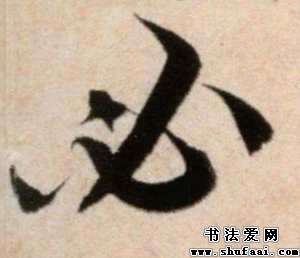 必
书法爱网
www.shufaai.com